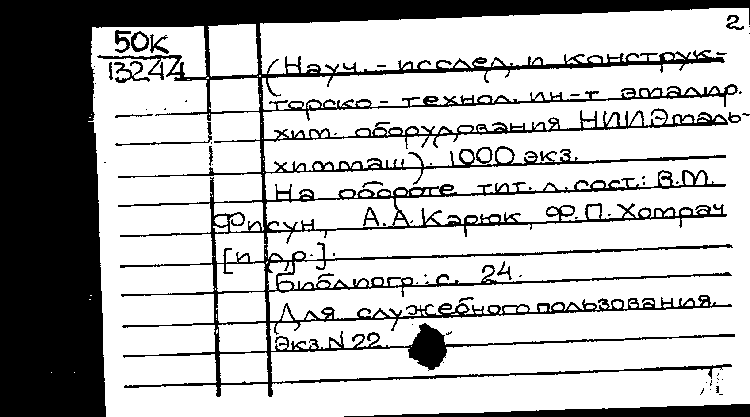 2
50К
13244
(Науч.-исслед. и конструк-
торско-технол. ин-т эмалир.
хим. оборудования НИИЭмаль-
химмаш). 1000 экз.
На обороте тит. л. сост.: В.М.
Фисун, А.А.Карюк, Ф.П.Хотрач
[и др.].
Библиогр.: с. 24.
Для служебного пользования.
Экз. N 22.